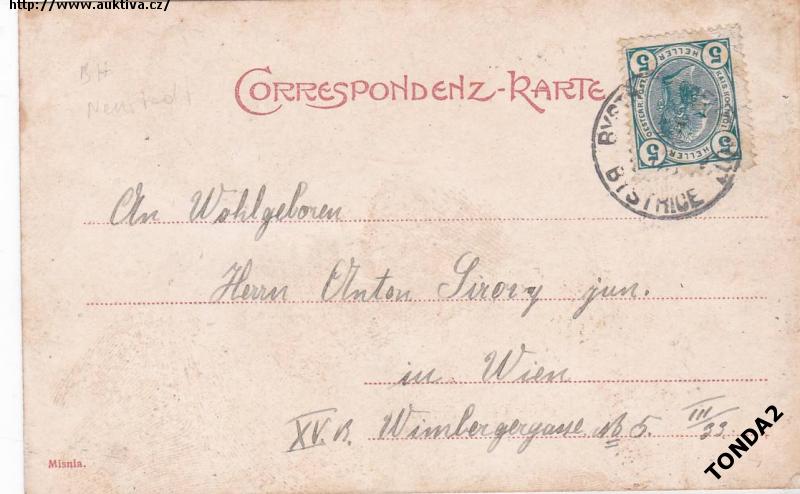 http://www.auktiva.cz/
BH
Neustadt
CORRESPONDENZ-KARTE
5 5
HELLER
OESTERR. POST
HELLER
5 5
BYST
BYSTRICE
An Wohlgeboren
Herrn Anton Sirovy jun.
in Wien
XV.B. Wimbergergasse № 5. III/33.
Misnia.
TONDA2